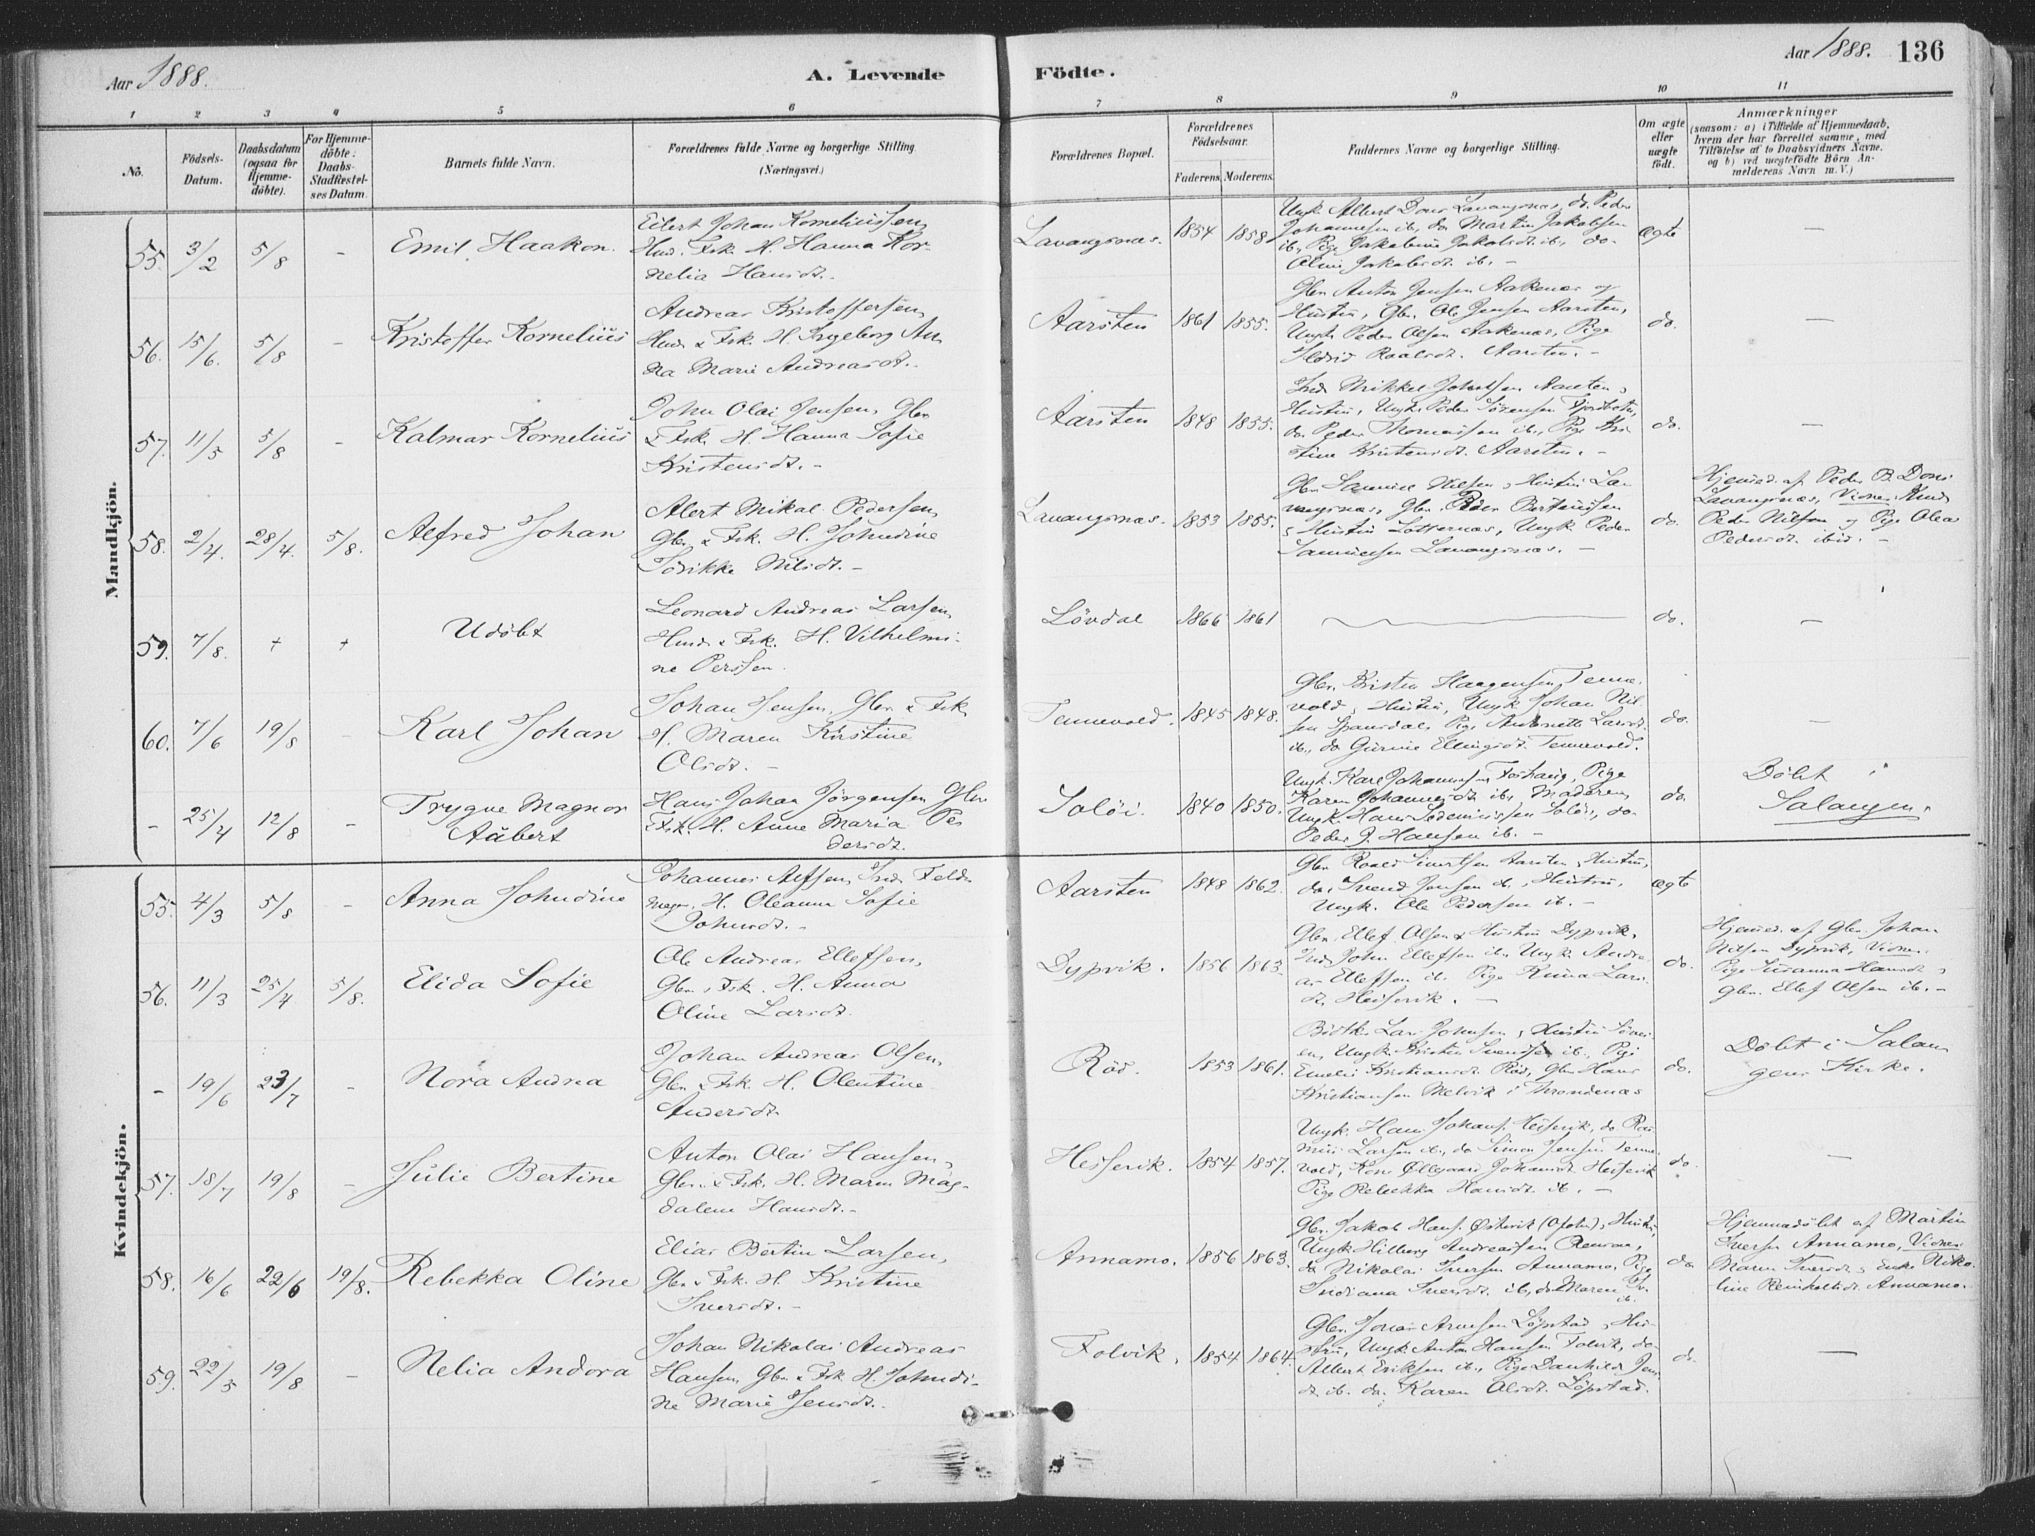 Aar 1888.
A. Levende
Födte.
Aar 1888. 136
1 2 3 4 5 6 7 8 9 10 11
No.
Födsels-Datum.
Daabsdatum (ogsaa for Hjemme-döbte).
For Hjemme-döbte: Daabs-Stadfæstelses Datum.
Barnets fulde Navn.
Forældrenes fulde Navne og borgerlige Stilling.
(Næringsvei.)
Forældrenes Bopæl.
Forældrenes Födselsaar.
Faderens. Moderens.
Faddernes Navne og borgerlige Stilling.
Om ægte eller uægte födt.
Anmærkninger
(saasom: a) i Tilfælde af Hjemmedaab, hvem der har forrettet samme, med Tilföielse af to Daabsvidners Navne, og b) ved uegtefödte Börn Anmelderens Navn m. V.)
Mandkjön.
55. 3/2 5/8 - Emil Haakon.
Eilert Johan Korneliussen,
Hmd. Fsk. H. Hanna Kor-
nelia Hansdt.
Lavangsnæs. 1854 1858
Johannesen ib., do Martin Jakobsen
ib., Pige Jakobine Jakobsdt. ib., do.
Oline Jakobsdt. ib. -
ægte
56. 15/6. 5/8 - Kristoffer Kornelius
Andreas Kristoffersen,
Hmd. & Fsk. H. Ingeborg An-
na Marie Andreasdt.
Aarsten 1861 1855.
Gbr. Anton Jensen Aakenæs og
Hustru, Gbr. Ole Jensen Aarsten,
Ungk. Peder Olsen Aakenæs, Pige
Roaldsdt. Aarsten. -
do.
57. 11/5 5/8 - Kalmar Kornelius
John Olai Jensen, Gbr.
& Fsk. H. Hanna Sofie
Kristensdt. -
Aarsten 1848 1855.
Ind. Mikkel Aarsten,
Hustru, Ungk. Peder Sörensen Fjordbotn,
do. Peder Thomassen ib., Pige Kri-
stine Kristensdt. Aarsten. -
do.
58. 2/4. 28/4. 5/8. Alfred Johan
Alert Mikal Pedersen,
Gbr. & Fsk. H. Johndine
Fredrikke Nilsdt. -
Lavangsnæs. 1853 1855.
Gbr. Nilsen & Hustru La-
vangsnæs, Gbr. Peder
& Hustru Ungk. Peder
Samuelsen Lavangsnæs. -
do.
Hjemmed. af Peder B. Dons
Lavangsnæs, Vidner: Hmd.
Peder Nilsen og Pige Olea
Pedersdt. ibid. -
59. 7/8. + + Udöbt
Leonard Andreas Larsen,
Hmd. & Fsk. H. Vilhelmi-
ne Perssen.
Lövdal 1866 1861 do.
60. 7/6 19/8 - Karl Johan
Johan Jensen, Gbr. & Fsk.
H. Maren Kirstine
Olsdt. -
Tennevold. 1845 1848.
Gbr. Kristen Haagensen Tenne-
vold, Hustru, Ungk. Johan Nil-
sen Spansdal, Pige Antonette Larsdt.
ib., do Gurine Ellingsdt. Tennevold.
do.
- 25/4 12/8 - Trygve Magnor
Aubert
Hans Johan Jörgensen Gbr.
Fsk. H. Anne Maria Pe-
dersdt.
Solöi. 1840 1850.
Ungk. Karl Johannessen Foshaug, Pige
Karen Johannesdt. ib., Moderen,
Ungk. Hans Solöi, do.
Peder J. Hansen ib. -
do.
Döbt i
Salangen.
Kvindekjön.
55. 4/3 5/8 - Anna Johndine
Johannes Alfsen, Ind. Feld-
mager, H. Oleanna Sofie
Johnsdt. -
Aarsten 1848 1862.
Gbr. Roald Sivertsen Aarsten, Hustru,
do. Svend Jensen ib., Hustru,
Ungk. Ole Pedersen ib. -
ægte
56. 11/3 25/4 5/8. Elida Sofie
Ole Andreas Ellefsen,
Gbr. & Fsk. H. Anna
Oline Larsdt.
Dypvik. 1856 1863.
Gbr. Ellef Olsen & Hustru Dypvik,
Ind. John Ellefsen ib., Ungk. Andre-
as Ellefsen ib. Pige Anna Lars-
dt. Hesjevik. -
do.
Hjemmed. af Gbr. Johan
Nilsen Dypvik, Vidner:
Pige Susanna Hansdt. &
Gbr. Ellef Olsen ib. -
- 19/6 23/7 - Nora Andrea
Johan Andreas Olsen,
Gbr. & Fsk. H. Olentine
Andersdt.
Röd. 1853 1861.
Lars Johnsen, Hustru
Ungk. Kristen Svendsen ib., Pige
Emelie Kristiansdt. Röd, Gbr. Hans
Kristiansen Melvik i Throndenæs
do.
Döbt i Salan-
gens Kirke.
57. 18/7 19/8 - Julie Bertine
Anton Olai Hansen,
Gbr. & Fsk. H. Maren Mag-
dalena Hansdt. -
Hesjevik. 1854 1857.
Ungk. Hans Johans. Hesjevik, do Ras-
mus Larsen ib., do Simon Jensen Tenne-
vold, Kone Øllegaard Johansdt. Hesjevik
Pige Rebekka Hansdt. ib. -
do.
58. 16/6 22/6 19/8. Rebekka Oline
Elias Bertin Larsen,
Gbr. & Fsk. H. Kristine
Iversdt. -
Annamo. 1856 1863.
Gbr. Jakob Hans. Østervik (Ofoten), Hustru,
Ungk. Hilberg Andreassen
do Nikolai Iversen Annamo, Pige
Indiana Iversdt. ib., do Maren
ib.
do.
Hjemmedöbt af Martin
Iversen Annamo, Vidner:
Maren Iversdt. & Enke Niko-
line Reinholtsdt. Annamo.
59. 22/5 19/8 - Nelia Andora
Johan Nikolai Andreas
Hansen, Gbr. & Fsk. H. Johndi-
ne Marie Jensdt. -
Folvik, 1854 1864.
Gbr. Jonas Arnesen Löpstad, Hu-
stru, Ungk. Anton Hansen Folvik, do.
Albert Eriksen ib., Pige Danhild Jens-
dt. ib. do. Karen Olsdt. Löpstad.
do.